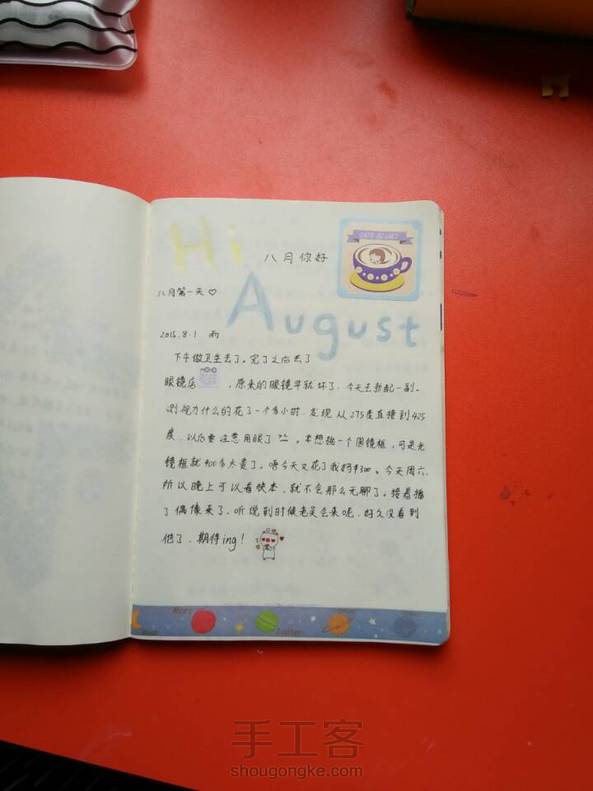 Hi
八月你好
八月第一天♡
August
2015.8.1 雨
下午做卫生去了。完了之后去了
眼镜店，原来的眼镜早就坏了，今天去新配一副。
测视力什么的花了一个多小时，发现从275度直接到425
度，以后要注意用眼了。本想挑一个圆镜框，可是光
镜框就400多太贵了。唔今天又花了我妈430。今天周六，
所以晚上可以看快本，就不会那么无聊了。接着播
了偶像来了，听说到时候老吴会来呢，好久没看到
他了，期待ing！
手工客
shougongke.com